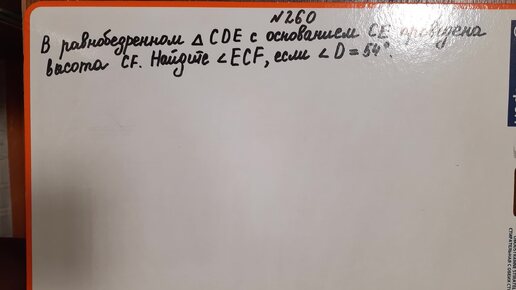 №260
В равнобедренном △ CDE с основанием CE проведена
высота CF. Найдите ∠ECF, если ∠D = 54°.